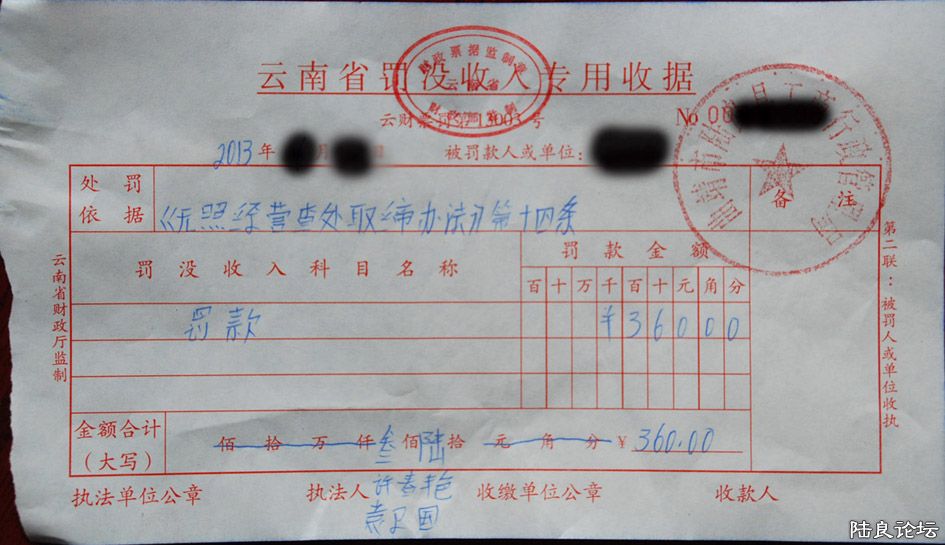 云南省罚没收入专用收据
财政票据监制章
云南省
财政部监制
云财票罚字13003号
No 00
2013年 月 日 被罚款人或单位:
曲靖市陆良县工商行政管理局
处罚依据 《无照经营查处取缔办法》第十四条 备注
罚没收入科目名称 罚款金额
百十万千百十元角分
罚款 ¥36000
金额合计(大写) 佰拾万仟叁佰陆拾元角分 ¥360.00
执法单位公章 执法人 许春艳 收缴单位公章 收款人
袁卫国
云南省财政厅监制
第二联:被罚人或单位收执
陆良论坛